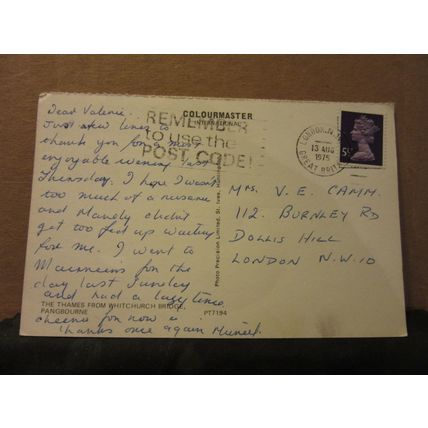 COLOURMASTER
INTERNATIONAL
REMEMBER
to use the
POST CODE!
LONDON. N.
13 AUG
1975
GREAT BRIT
Dear Valerie.
Just a few lines to
thank you for a very
enjoyable evening last
Thursday. I hope I wasn't
too much of a nuisance
and Mandy didn't
get too fed up waiting
for me. I went to
for the
day last Sunday
and had a lazy time
cheerio for now &
thanks once again Muriel.
THE THAMES FROM WHITCHURCH BRIDGE,
PANGBOURNE
PT7194
Photo Precision Limited, St. Ives,
MRS. V. E. CAMM.
112. BURNLEY RD
DOLLIS HILL
LONDON N.W.10